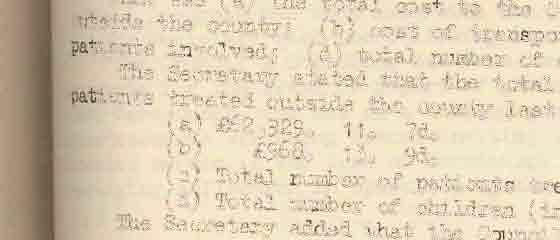 (a) the total cost to the
outside the county; (b) cost of
patients involved; (d) total number of
The Secretary stated that the total
patients treated outside the county last
(a) £62,329. 11. 7d.
(b) £968. 13. 9d.
(c) Total number of patients
(d) Total number of children
The Secretary added that the